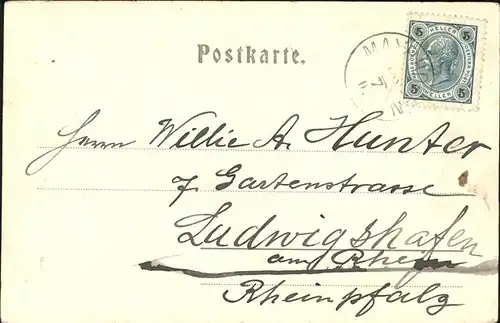 Postkarte.
5 HELLER 5
5 HELLER 5
Herrn Willie A. Hunter
7 Gartenstrasse
Ludwigshafen
am Rhein
Rheinpfalz